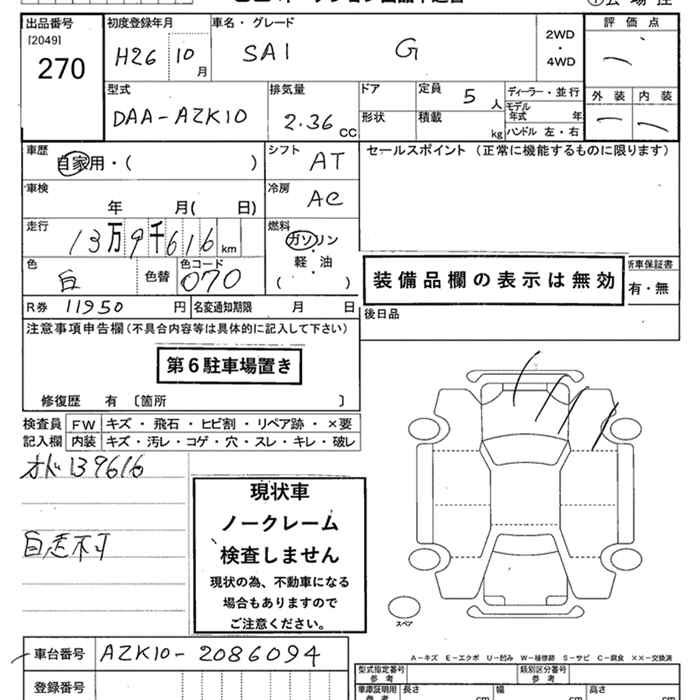 出品番号 初度登録年月 車名・グレード 評価点
[2049] 2WD
270 H26 10 月 SAI G ・ 一
4WD
型式 排気量 ドア 定員 5 人 ディーラー・並行 外装 内装
DAA-AZK10 2.36 CC 形状 積載 kg モデル年式 年 一 一
ハンドル 左・右
車歴 自家用・( ) シフト AT セールスポイント (正常に機能するものに限ります)
車検 年 月( 日) 冷房 AC
走行 13万9千616 km 燃料 ガソリン
軽・油
( )
色 白 色替 色コード 070 装備品欄の表示は無効 新車保証書
有・無
R券 11950 円 名変通知期限 月 日 後日品
注意事項申告欄(不具合内容等は具体的に記入して下さい)
第6駐車場置き
修復歴 有 〔箇所 〕
検査員 FW キズ・飛石・ヒビ割・リペア跡・×要
記入欄 内装 キズ・汚レ・コゲ・穴・スレ・キレ・破レ
オド139616
自走不可
現状車
ノークレーム
検査しません
現状の為、不動車になる
場合もありますので
ご注意ください。
スペア
A-キズ E-エクボ U-凹み W-補修跡 S-サビ C-腐食 ××-交換済
車台番号 AZK10-2086094
型式指定番号 参考 類別区分番号 参考
登録番号 車庫証明用 参考 長さ cm 幅 cm 高さ cm